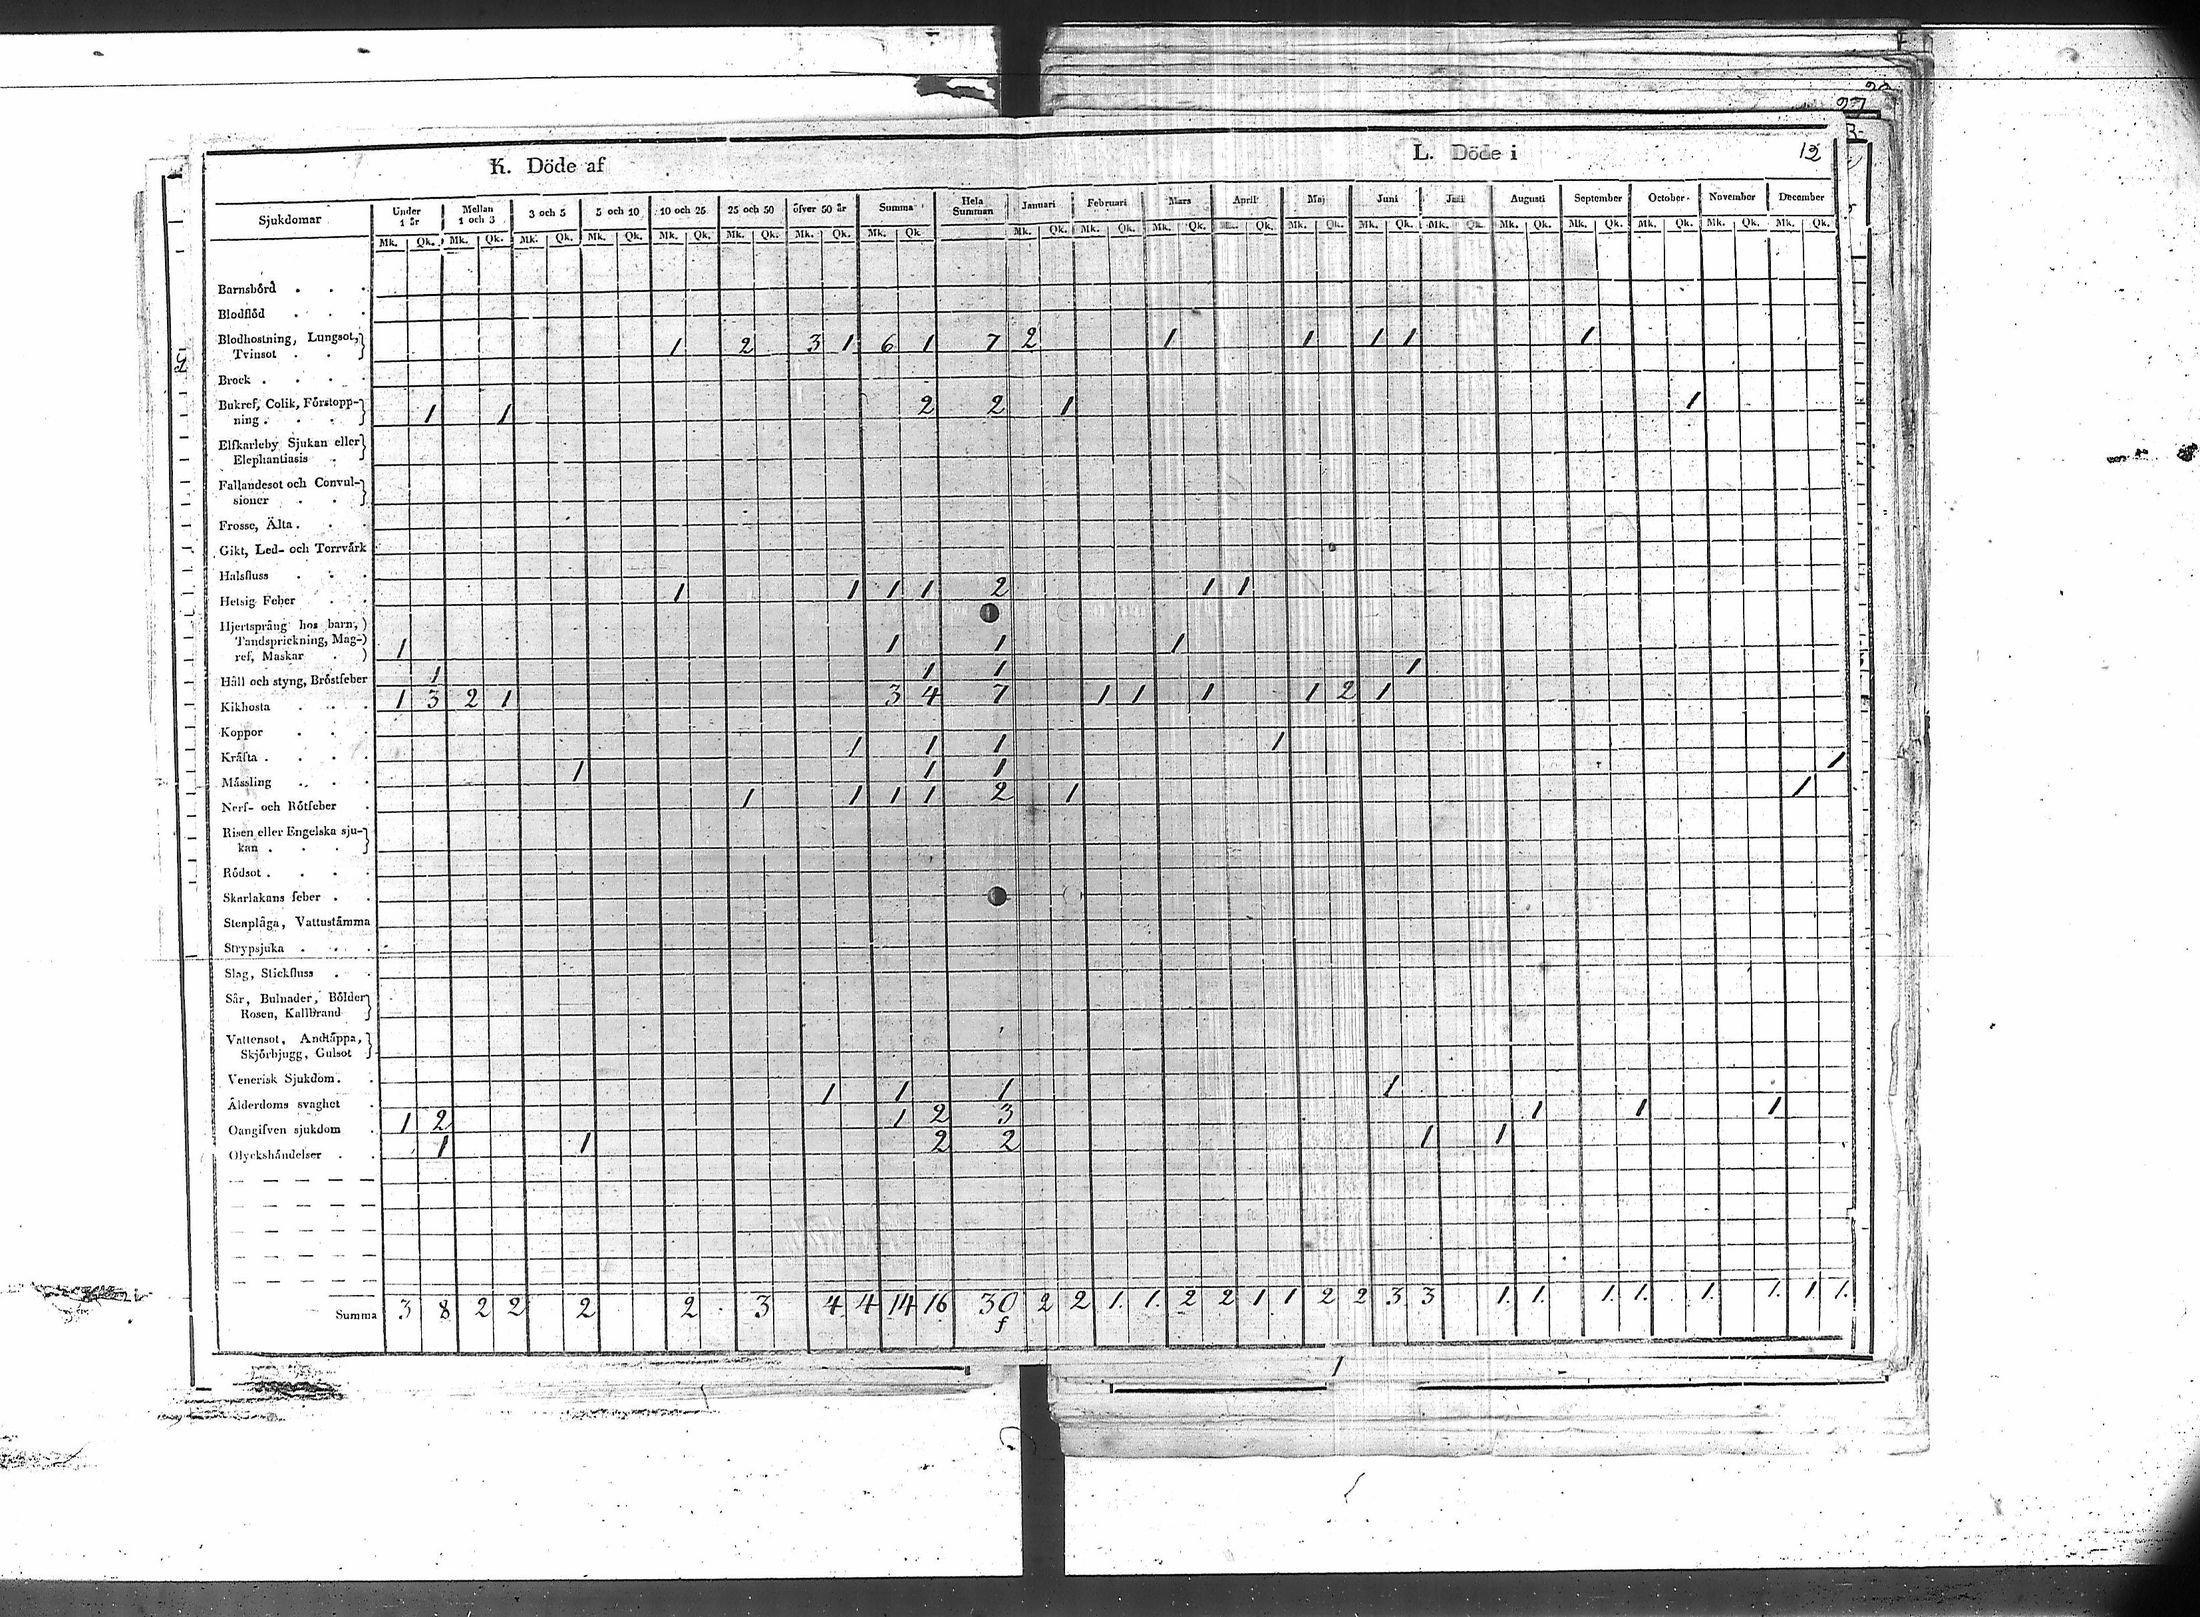 K. Döde af
L. Döde i 12
Sjukdomar Under 1 år Mellan 1 och 3 3 och 5 5 och 10 10 och 25 25 och 50 öfver 50 år Summa Hela Summan Januari Februari Mars April Maj Juni Juli Augusti September October November December
Mk. Qk. Mk. Qk. Mk. Qk. Mk. Qk. Mk. Qk. Mk. Qk. Mk. Qk. Mk. Qk. Mk. Qk. Mk. Qk. Mk. Qk. Mk. Qk. Mk. Qk. Mk. Qk. Mk. Qk. Mk. Qk. Mk. Qk. Mk. Qk. Mk. Qk. Mk. Qk.
Barnsbörd
Blodflöd
Blodhostning, Lungsot,
Tvinsot 1 2 3 1 6 1 7 2 1 1 1 1 1
Brock
Bukref, Colik, Förstopp-
ning 1 1 2 2 1 1
Elfkarleby Sjukan eller
Elephantiasis
Fallandesot och Convul-
sioner
Frosse, Älta
Gikt, Led- och Torrvärk
Halsfluss
Hetsig Feber 1 1 1 1 2 1 1
Hjertsprång hos barn,
Tandsprickning, Mag-
ref, Maskar 1 1 1 1
Håll och styng, Bröstfeber 1 1 1 1
Kikhosta 1 3 2 1 3 4 7 1 1 1 1 2 1
Koppor
Kräfta 1 1 1 1
Mässling 1 1 1 1
Nerf- och Rötfeber 1 1 1 1 2 1 1
Risen eller Engelska sju-
kan
Rödsot
Skarlakans feber
Stenplåga, Vattustämma
Strypsjuka
Slag, Stickfluss
Sår, Bulnader, Bölder
Rosen, Kallbrand
Vattensot, Andtäppa,
Skjörbjugg, Gulsot
Venerisk Sjukdom
Ålderdoms svaghet 1 1 1 1
Oangifven sjukdom 1 2 1 2 3 1 1 1
Olyckshändelser 1 1 2 2 1 1
Summa 3 8 2 2 2 2 3 4 4 14 16 30 2 2 1. 1. 2 2 1 1 2 2 3 3 1. 1. 1. 1. 1. 1. 1. 1.